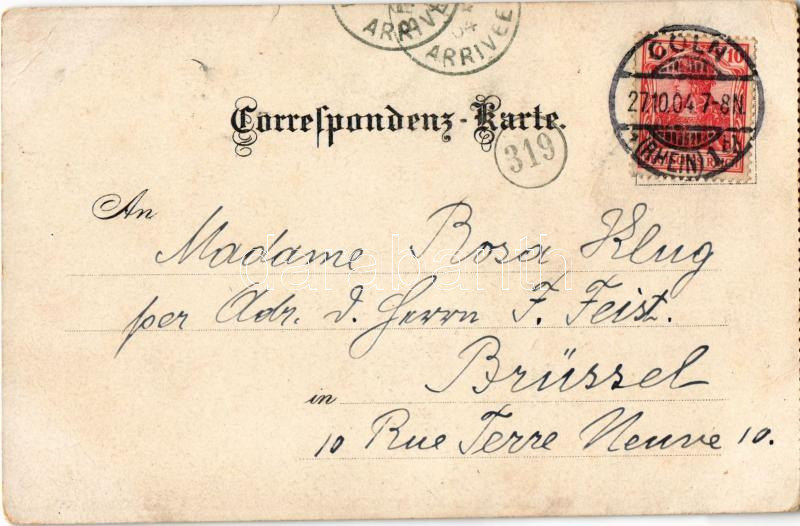 ARRIVÉE
04
ARRIVÉE
10
CÖLN
27.10.04.7-8N.
*(RHEIN) 1
Correspondenz-Karte.
319
An
Madame Rosa Klug
darabanth
per Adr. d. Herrn F. Feist.
Brüssel
in
10 Rue Terre Neuve 10.